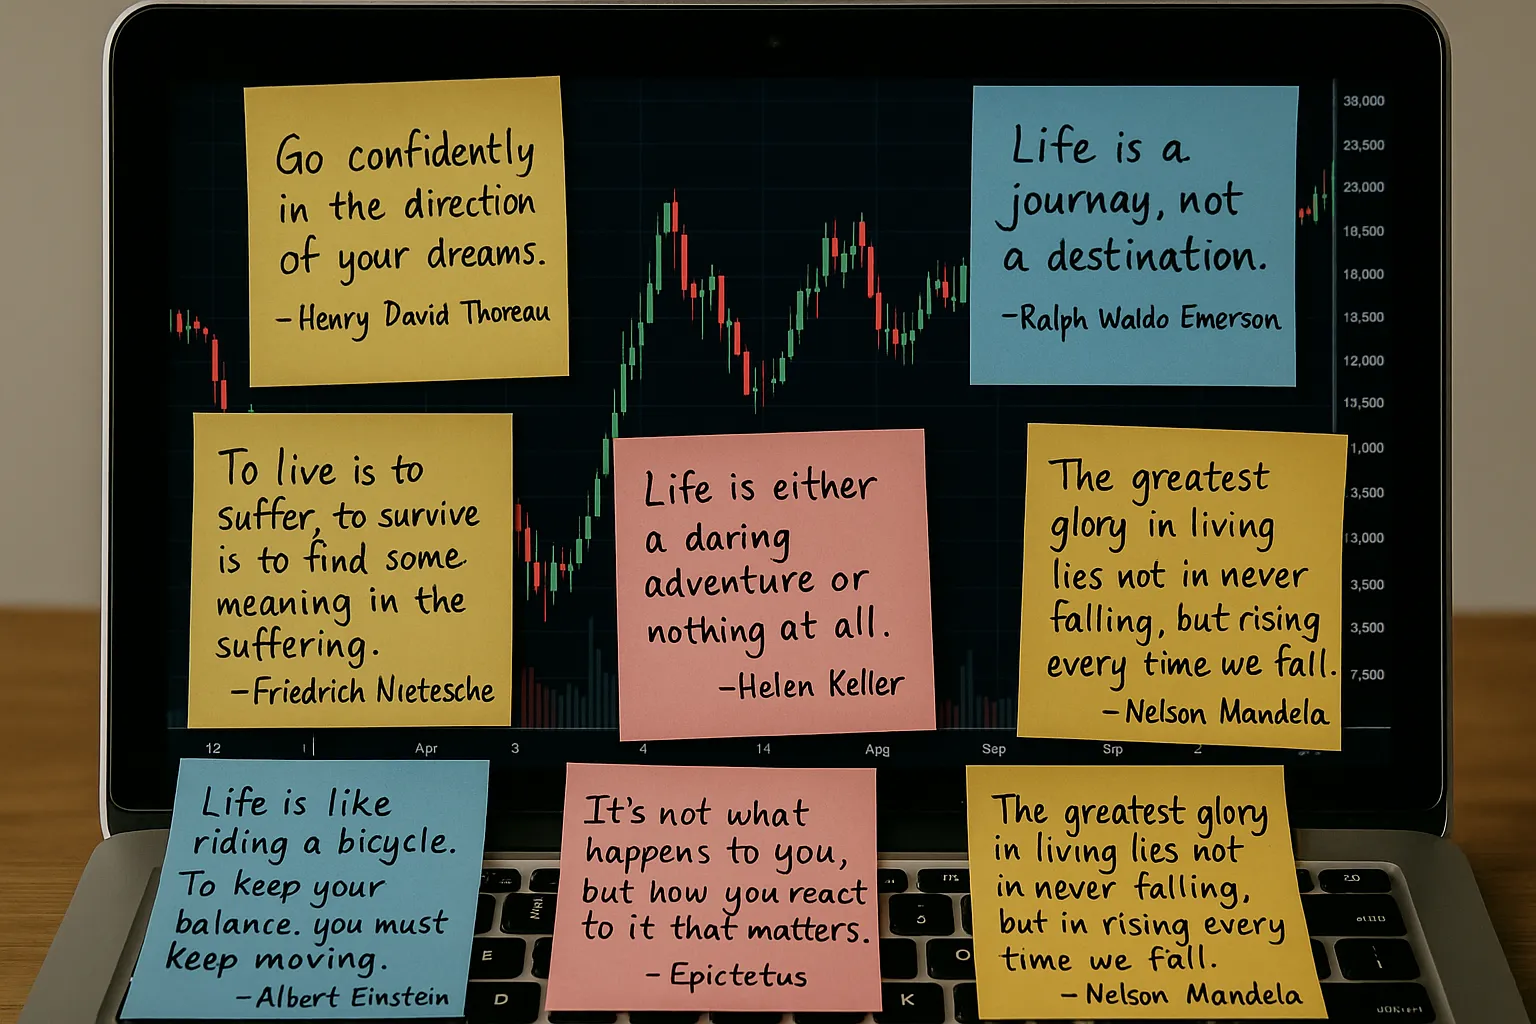 Go confidently
in the direction
of your dreams.
-Henry David Thoreau
Life is a
journay, not
a destination.
-Ralph Waldo Emerson
To live is to
suffer, to survive
is to find some
meaning in the
suffering.
-Friedrich Nietesche
Life is either
a daring
adventure or
nothing at all.
-Helen Keller
The greatest
glory in living
lies not in never
falling, but rising
every time we fall.
-Nelson Mandela
38,000
23,500
23,000
18,500
18,000
13,500
12,000
13,500
1,000
3,500
13,000
3,500
3,500
7,500
12 Apr 3 4 14 Apg Sep Srp 2
Life is like
riding a bicycle.
To keep your
balance. you must
keep moving.
-Albert Einstein
It's not what
happens to you,
but how you react
to it that matters.
- Epictetus
The greatest glory
in living lies not
in never falling,
but in rising every
time we fall.
- Nelson Mandela
E
O
D
K